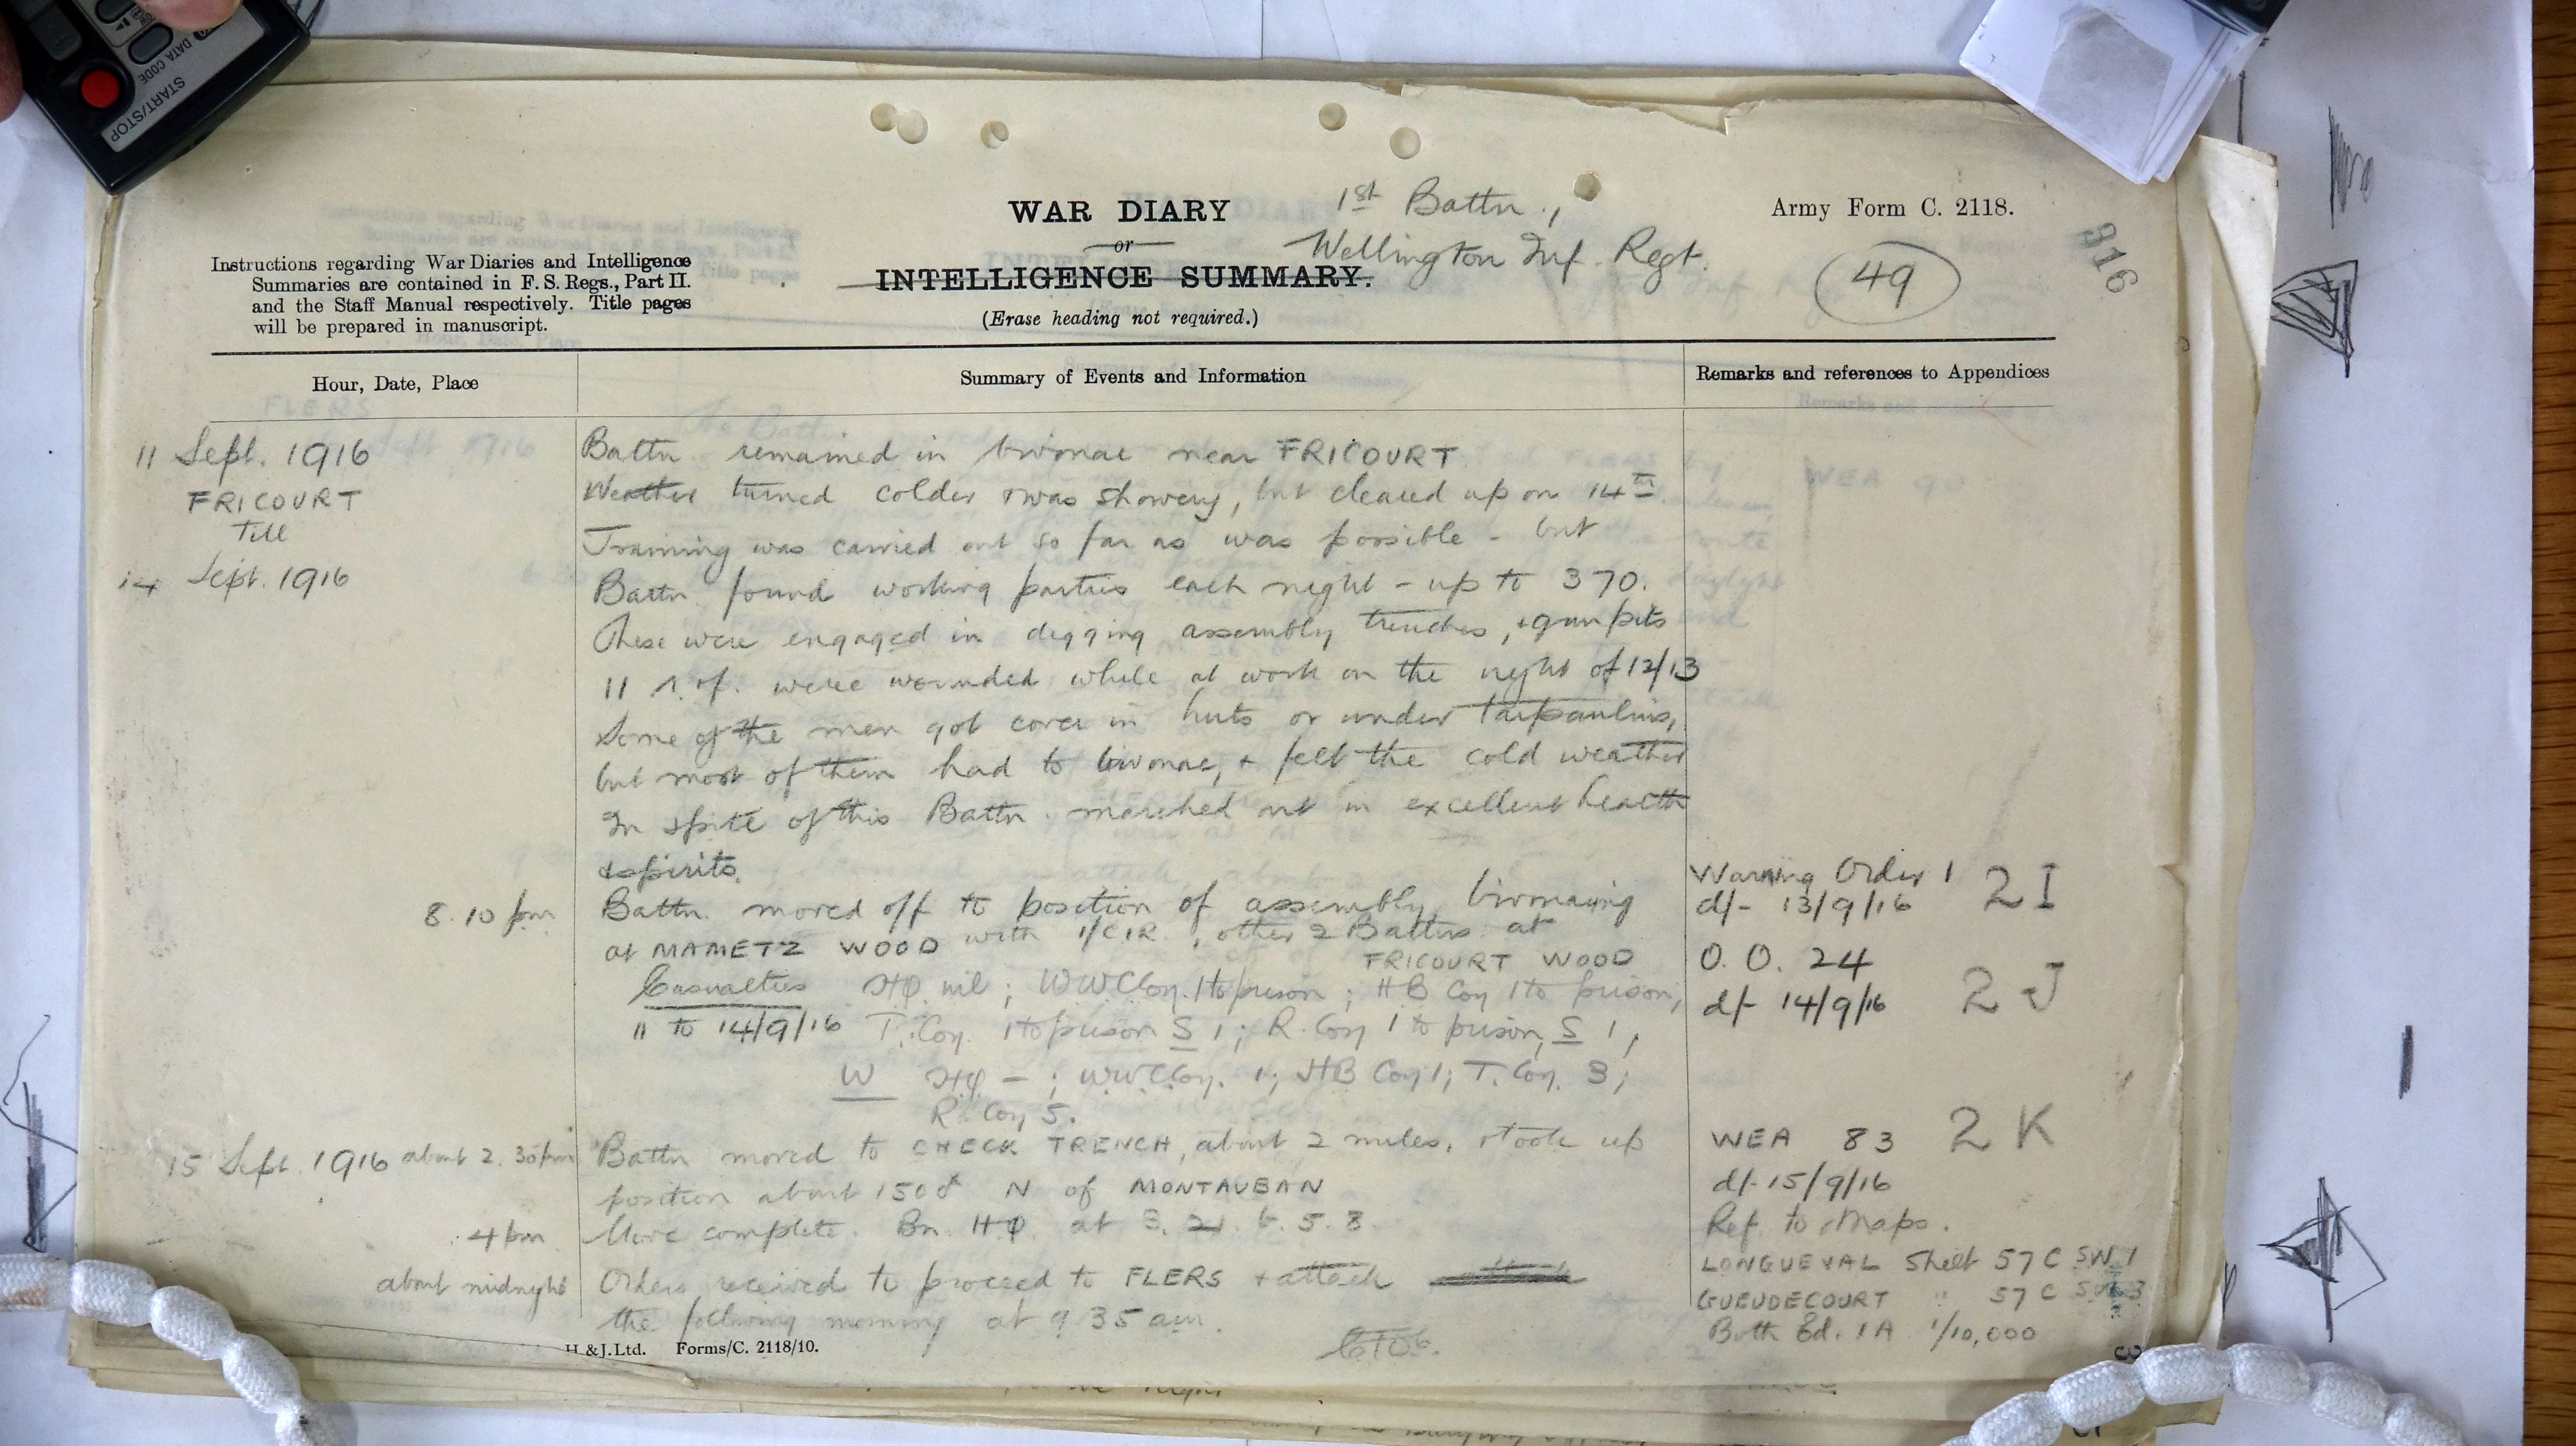 START/STOP
DATA CODE
WAR DIARY
or
INTELLIGENCE SUMMARY.
(Erase heading not required.)
1st Battn.,
Wellington Inf. Regt.
Army Form C. 2118.
49
316
Instructions regarding War Diaries and Intelligence
Summaries are contained in F. S. Regs., Part II.
and the Staff Manual respectively. Title pages
will be prepared in manuscript.
Hour, Date, Place
Summary of Events and Information
Remarks and references to Appendices
11 Sept. 1916
FRICOURT
Till
14 Sept. 1916
Battn remained in bivouac near FRICOURT
Weather turned colder & was showery, but cleared up on 14th.
Training was carried out so far as was possible - but
Battn found working parties each night - up to 370.
These were engaged in digging assembly trenches, & gun pits
11 r. & f. were wounded while at work on the night of 12/13
Some of the men got cover in huts or under tarpaulins,
but most of them had to bivouac, & felt the cold weather
In spite of this Battn. marched out in excellent health
& spirits.
8.10 pm
Battn. moved off to position of assembly, bivouacing
at MAMETZ WOOD with 1/C.I.R., other 2 Battns at
FRICOURT WOOD
Warning Order 1
d/- 13/9/16
2 I
O. O. 24
d/- 14/9/16
2 J
Casualties HQ. nil; WWC Coy. 1 to prison; HB Coy 1 to prison,
11 to 14/9/16 T. Coy. 1 to prison S 1; R. Coy 1 to prison, S 1,
W HQ - ; WWC Coy. 1; HB Coy 1; T. Coy. 3;
R. Coy 5.
15 Sept. 1916 about 2.30 pm
Battn moved to CHECK TRENCH, about 2 miles, & took up
position about 1500x N of MONTAUBAN
4 pm
Move complete. Bn. HQ. at S. 21. b. 5. 8.
about midnight
Orders received to proceed to FLERS & attack
the following morning at 9 35 am.
WEA 83
2 K
d/- 15/9/16
Ref. to Maps.
LONGUEVAL Sheet 57 C SW. 1
GUEUDECOURT " 57 C SW. 3
Both Ed. 1A 1/10,000
H. & J. Ltd. Forms/C. 2118/10.